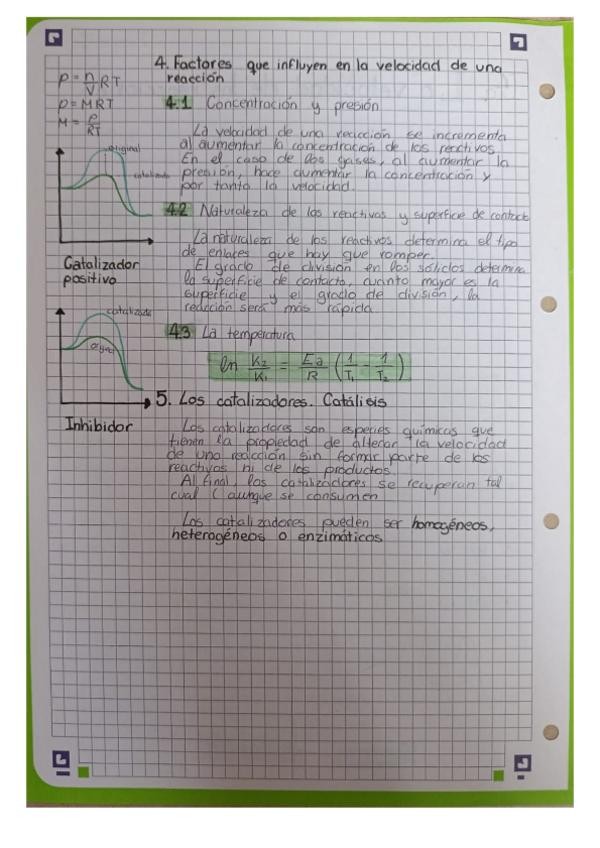 4. Factores que influyen en la velocidad de una
reacción
P = n/V RT
P = MRT
M = P/RT
4.1 Concentración y presión
La velocidad de una reacción se incrementa
al aumentar la concentración de los reactivos.
En el caso de los gases, al aumentar la
presión, hace aumentar la concentración y
por tanto la velocidad.
original
catalizada
Catalizador
positivo
4.2 Naturaleza de los reactivos y superficie de contacto
La naturaleza de los reactivos determina el tipo
de enlaces que hay que romper.
El grado de división en los sólidos determina
la superficie de contacto, cuanto mayor es la
superficie y el grado de división, la
reacción será más rápida
catalizada
original
Inhibidor
4.3 La temperatura
ln K2/K1 = Ea/R (1/T1 - 1/T2)
5. Los catalizadores. Catálisis
Los catalizadores son especies químicas que
tienen la propiedad de alterar la velocidad
de una reacción sin formar parte de los
reactivos ni de los productos.
Al final, los catalizadores se recuperan tal
cual (aunque se consumen
Los catalizadores pueden ser homogéneos,
heterogéneos o enzimáticos